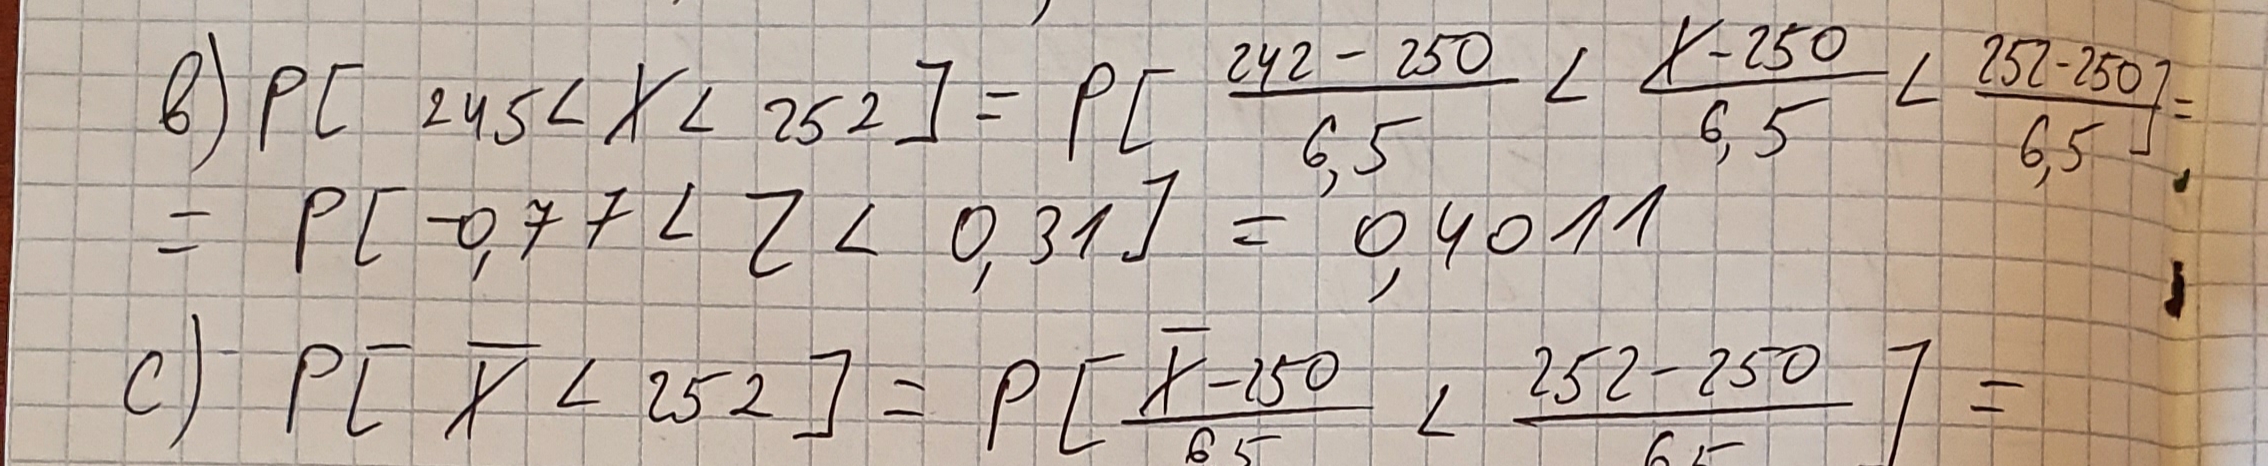 b) P[ 245 < X < 252 ] = P[ (242 - 250)/6,5 < (X - 250)/6,5 < (252 - 250)/6,5 ] =
= P[ -0,77 < Z < 0,31 ] = 0,4011
c) P[ X̄ < 252 ] = P[ (X̄ - 250)/6,5 < (252 - 250)/6,5 ] =